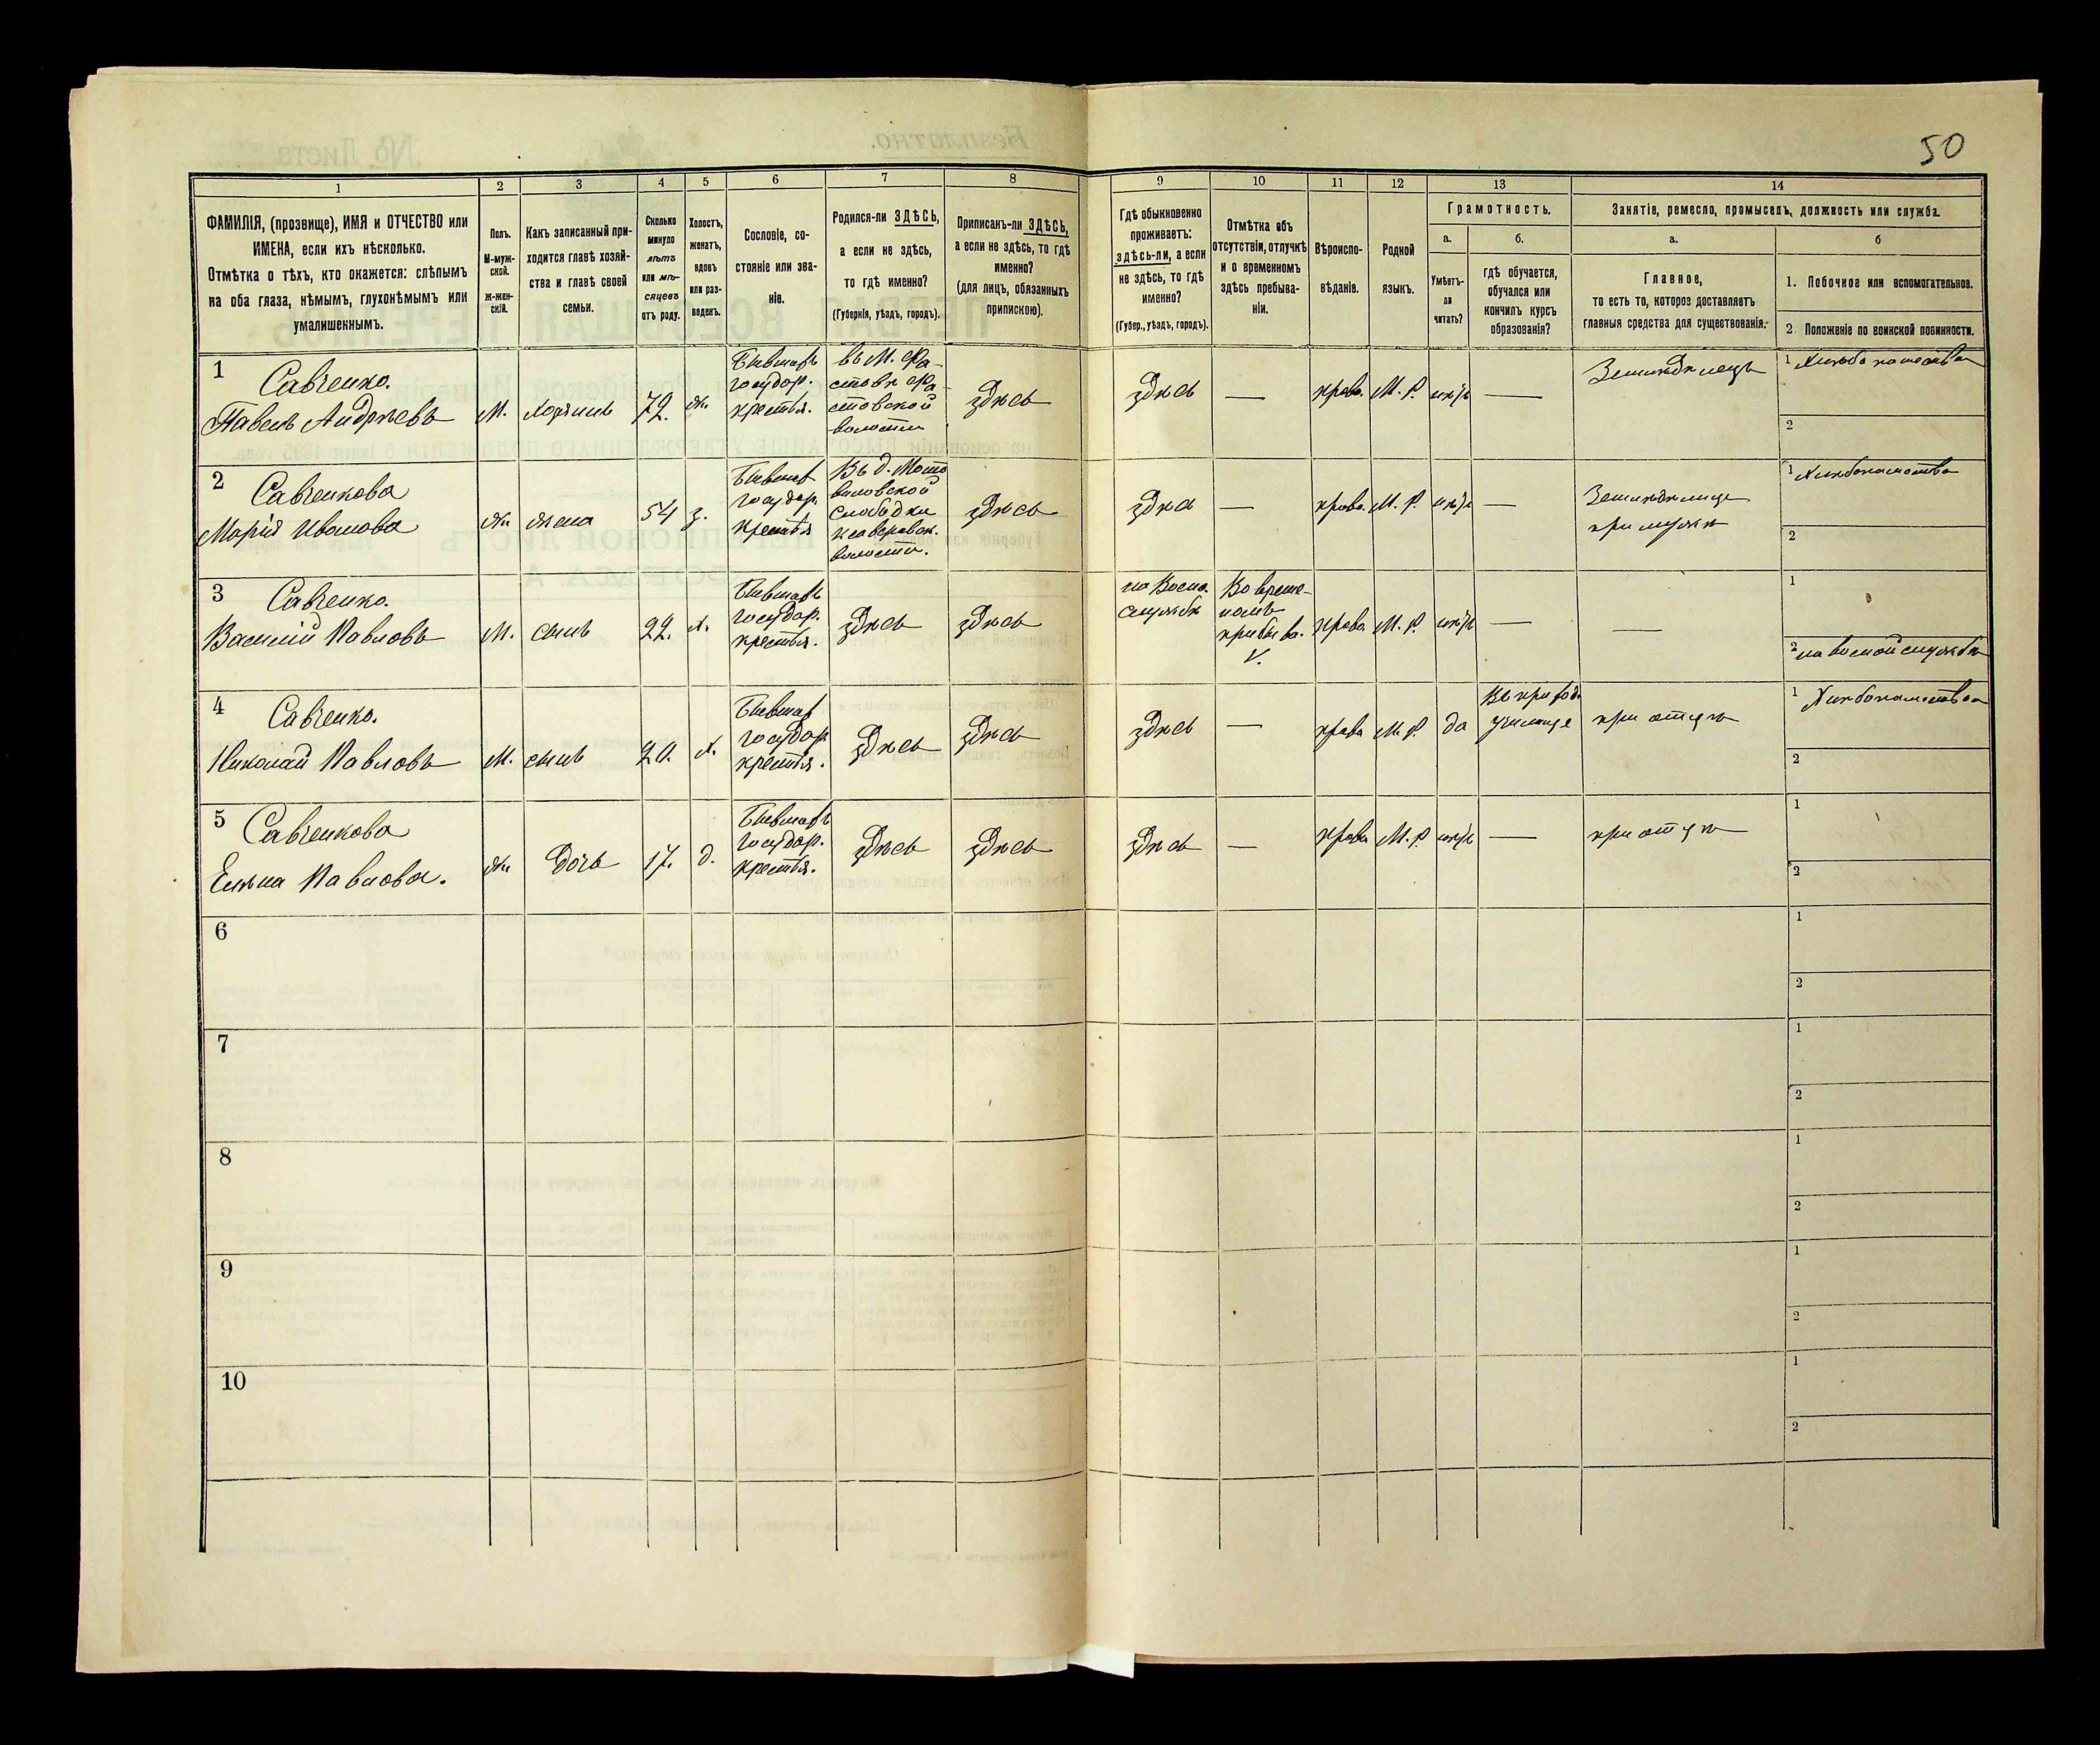 50
1 2 3 4 5 6 7 8 9 10 11 12 13 14
ФАМИЛІЯ, (прозвище), ИМЯ и ОТЧЕСТВО или
ИМЕНА, если ихъ нѣсколько.
Отмѣтка о тѣхъ, кто окажется: слѣпымъ
на оба глаза, нѣмымъ, глухонѣмымъ или
умалишеннымъ.
Полъ.
М-муж-
ской.
Ж-жен-
скій.
Какъ записанный при-
ходится главѣ хозяй-
ства и главѣ своей
семьи.
Сколько
минуло
лѣтъ
или мѣ-
сяцевъ
отъ роду.
Холостъ,
женатъ,
вдовъ
или раз-
веденъ.
Сословіе, со-
стояніе или зва-
ніе.
Родился-ли ЗДѢСЬ,
а если не здѣсь,
то гдѣ именно?
(Губернія, уѣздъ, городъ).
Приписанъ-ли ЗДѢСЬ,
а если не здѣсь, то гдѣ
именно?
(для лицъ, обязанныхъ
припискою).
Гдѣ обыкновенно
проживаетъ:
здѣсь-ли, а если
не здѣсь, то гдѣ
именно?
(Губер., уѣздъ, городъ).
Отмѣтка объ
отсутствіи, отлучкѣ
и о временномъ
здѣсь пребыва-
ніи.
Вѣроиспо-
вѣданіе.
Родной
языкъ.
Грамотность.
а.
Умѣетъ-
ли
читать?
б.
гдѣ обучается,
обучался или
кончилъ курсъ
образованія?
Занятіе, ремесло, промыселъ, должность или служба.
а.
Главное,
то есть то, которое доставляетъ
главныя средства для существованія.
б
1. Побочное или вспомогательное.
2. Положеніе по воинской повинности.
1
Савченко.
Павелъ Андреевъ
М.
хозяинъ
72.
ж.
Бывшаѣ
государ.
крестья.
въ М. Фа-
стовѣ Фа-
стовской
волости
здѣсь
здѣсь
—
права.
М. Р.
нѣтъ
—
Земледѣлецъ
1 Хлѣбопашество
2
2
Савченкова
Марія Иванова
ж.
жена
54
з.
государ.
крестья
Въ д. Мото
виловской
слободки
волости.
здѣсь
здѣсь
—
права.
М. Р.
нѣтъ
—
Земледѣлица
при мужѣ
1 Хлѣбопашество
2
3
Савченко.
Василій Павловъ
М.
сынъ
22.
х.
государ.
крестья.
здѣсь
здѣсь
на Воен.
службѣ
Во време-
номъ
прибыва.
V.
права
М. Р.
нѣтъ
—
—
1
2 на военой службѣ
4
Савченко.
Николай Павловъ
М.
сынъ
20.
х.
государ
крестья.
здѣсь
здѣсь
здѣсь
—
права
М. Р.
да
Въ приход.
училище
при отцѣ
1 Хлѣбопашество
2
5
Савченкова
Елена Павлова.
ж.
дочь
17.
д.
государ.
крестья.
здѣсь
здѣсь
здѣсь
—
права
М. Р.
нѣтъ
—
при отцѣ
1
2
6
1
2
7
1
2
8
1
2
9
1
2
10
1
2